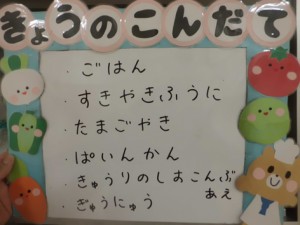 きょうのこんだて
・ごはん
・すきやきふうに
・たまごやき
・ぱいんかん
・きゅうりのしおこんぶ
あえ
・ぎゅうにゅう